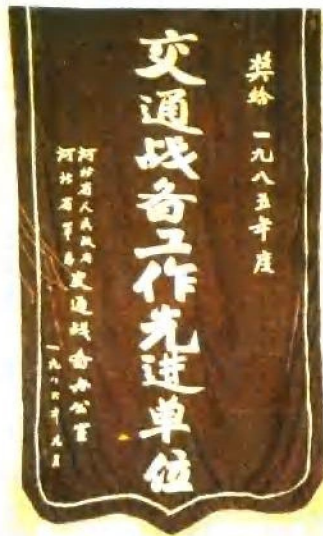 奖给 一九八五年度
交通战备工作先进单位
河北省人民政府
河北省军区
交通战备办公室
一九八六年